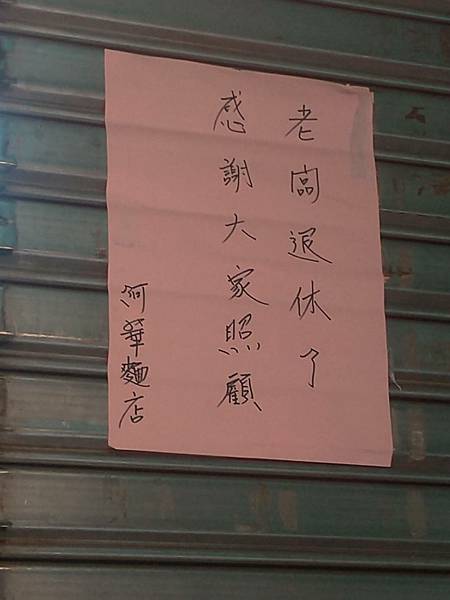 老闆退休了
感謝大家照顧
阿華麵店